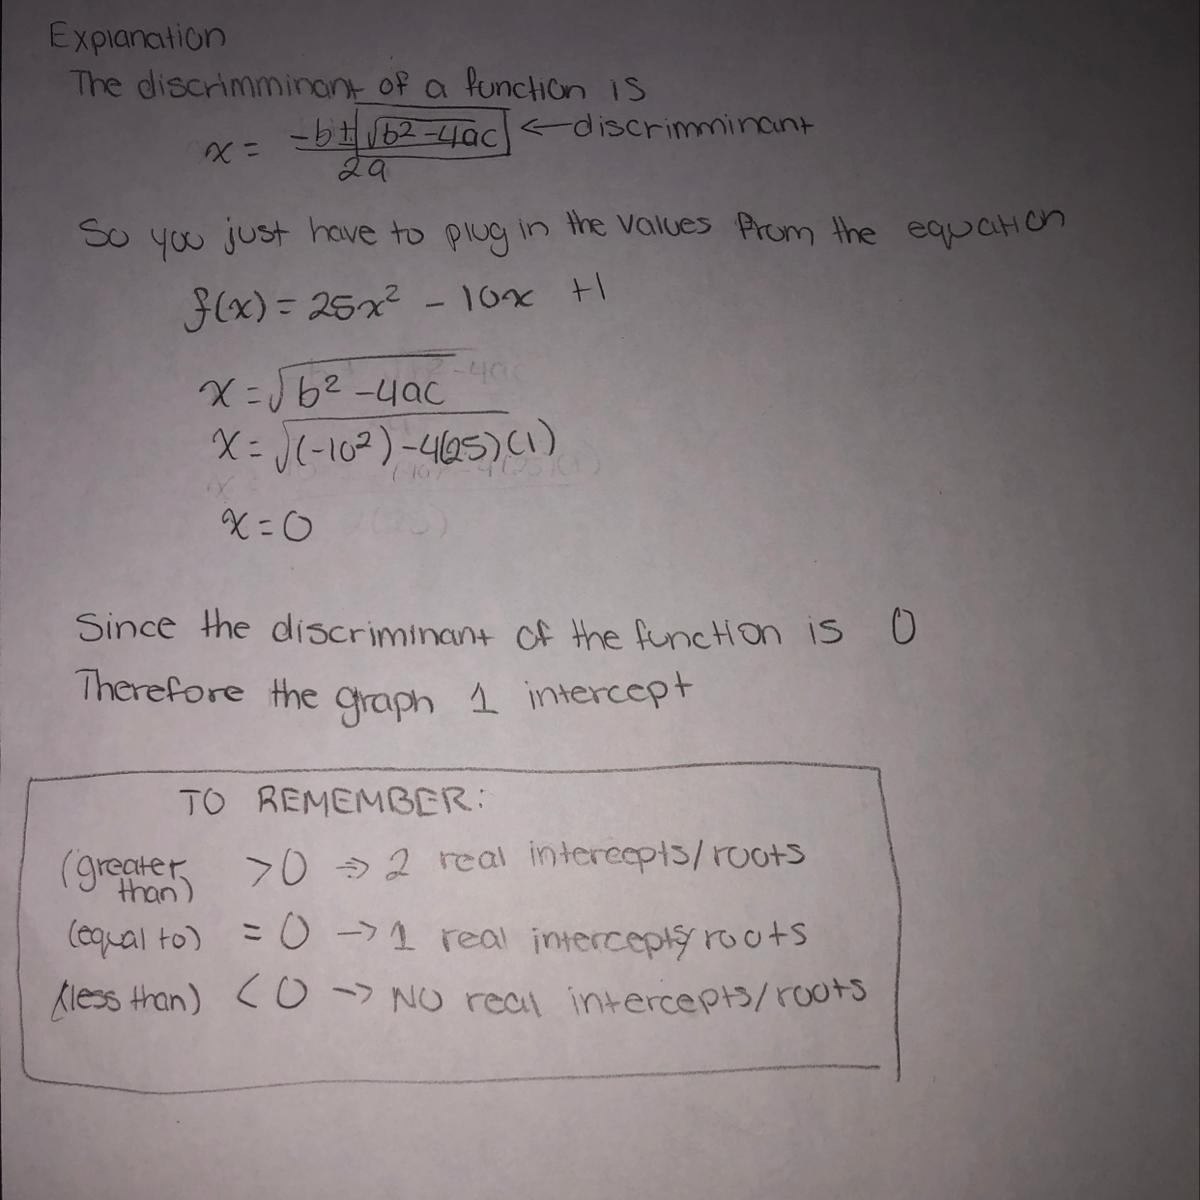 Explanation
The discrimminant of a function is
x = -b ± √b² - 4ac / 2a ← discrimminant
So you just have to plug in the values from the equation
f(x) = 25x² - 10x + 1
x = √b² - 4ac
x = √(-10²) - 4(25)(1)
x = 0
Since the discriminant of the function is 0
Therefore the graph 1 intercept
TO REMEMBER:
(greater than) > 0 => 2 real intercepts/roots
(equal to) = 0 -> 1 real intercepts/roots
(less than) < 0 -> NO real intercepts/roots